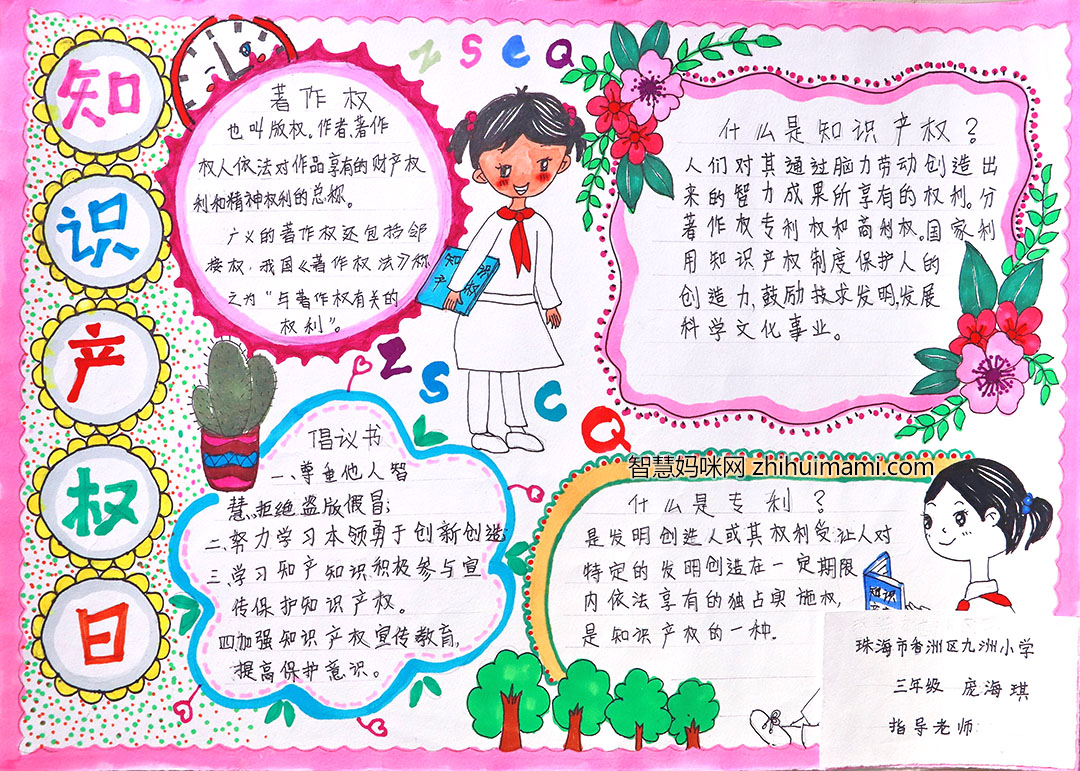 知
识
产
权
日
Z S C Q
著作权
也叫版权,作者,著作
权人依法对作品享有的财产权
利和精神权利的总称。
广义的著作权还包括邻
接权,我国《著作权法》称
之为“与著作权有关的
权利”。
知识
产权
什么是知识产权?
人们对其通过脑力劳动创造出
来的智力成果所享有的权利。分
著作权专利权和商标权。国家利
用知识产权制度保护人的
创造力,鼓励技术发明,发展
科学文化事业。
Z S C Q
倡议书
一、尊重他人智
慧,拒绝盗版假冒;
二、努力学习本领勇于创新创造
三、学习知产知识积极参与宣
传保护知识产权。
四加强知识产权宣传教育,
提高保护意识。
智慧妈咪网 zhihuimami.com
什么是专利?
是发明创造人或其权利受让人对
特定的发明创造在一定期限
内依法享有的独占实施权,
是知识产权的一种.
知识
珠海市香洲区九洲小学
三年级 庞海琪
指导老师